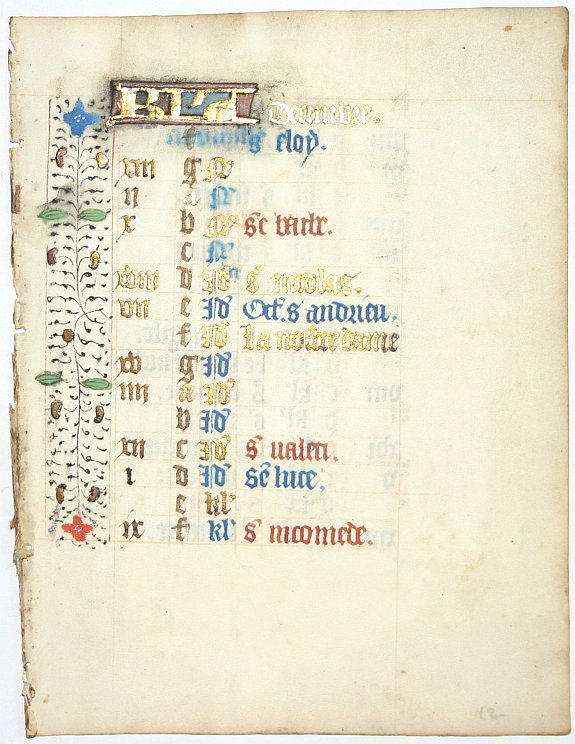 KL Decembre.
f s' eloy.
xiii g N'
ii N'
x b N' se barbe.
c N'
xviii d Id' s' nicolas.
vii e Id' Oct. s andrieu.
f Id' la nostre dame
xv g Id'
iiii a Id'
b Id'
xii c Id' s' valeri.
i d Id' se luce.
e kl'
ix f kl' s' nicomede.
12